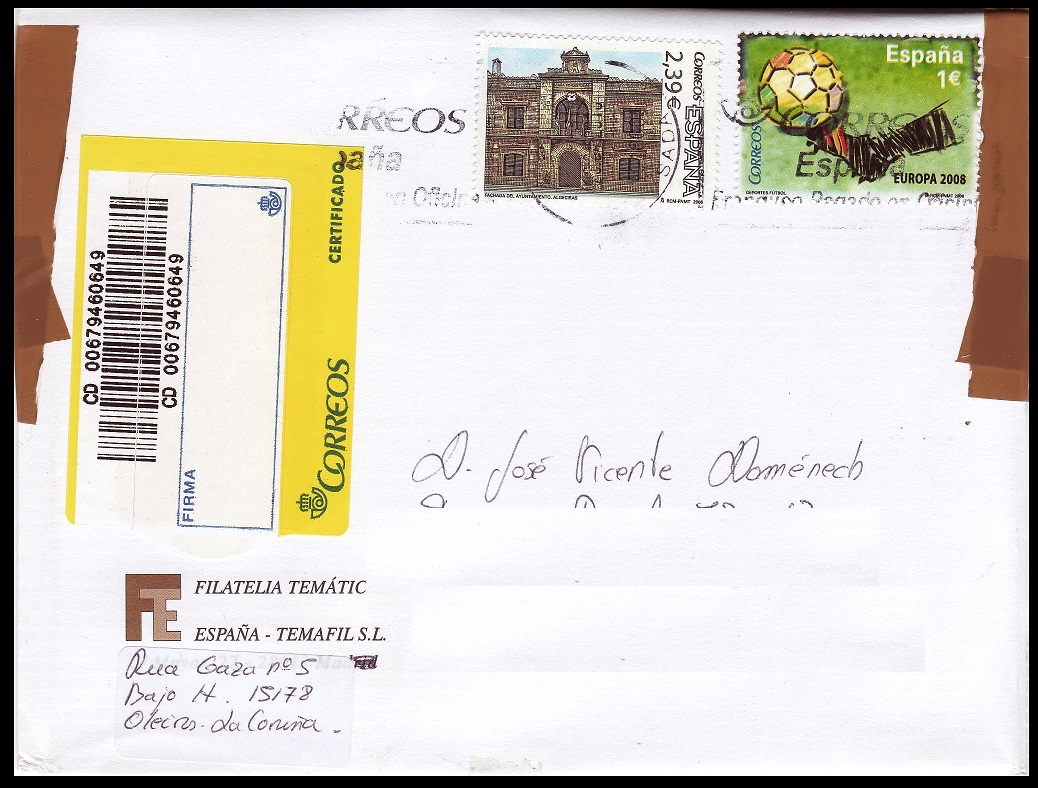 RREOS
aña
en Oficin
CORREOS ESPAÑA
2,39€
FACHADA DEL AYUNTAMIENTO. ALGECIRAS
RCM-FNMT 2008
SADA
España
1€
CORREOS
CORREOS
España
Franqueo Pagado en Oficin
EUROPA 2008
DEPORTES-FÚTBOL
RCM-FNMT 2008
CD 00679460649
CD 00679460649
FIRMA
CERTIFICADO
CORREOS
D. José Vicente Doménech
FILATELIA TEMÁTIC
ESPAÑA - TEMAFIL S.L.
Rua Gaza nº 5
Bajo H. 15178
Oleiros - La Coruña.